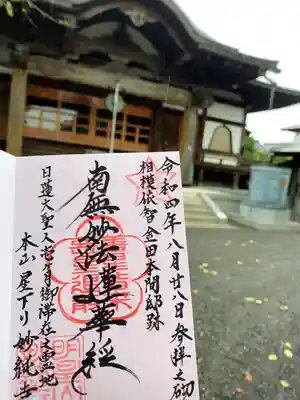 令和四年八月廿八日参拝之砌
相模依智金田本間邸跡
南無妙法蓮華経
日蓮大聖人壱ヶ月御滞在之霊地
本山 星下り 妙純寺